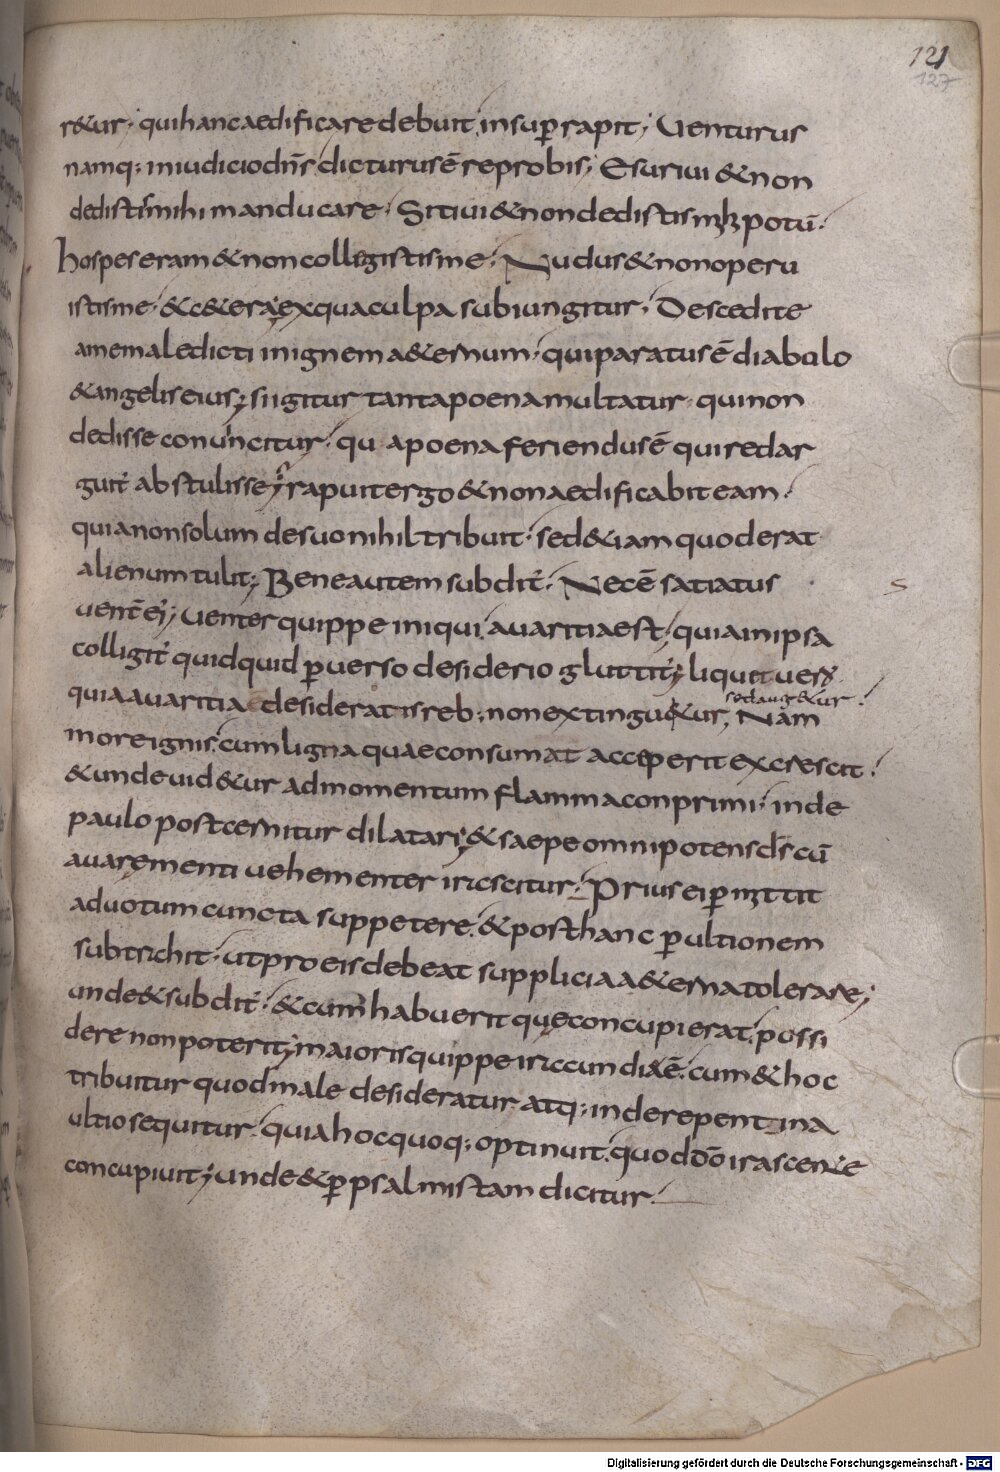 121
127
r&ur; qui hanc aedificare debuit, insup̄ rapit; Uenturus
namq; in iudicio dn̄s dicturus ē reprobis; Esuriui & non
dedistis mihi manducare. Sitiui & non dedistis m̄h potū.
hospes eram & non collegistis me. Nudus & non operu
istis me. & c&era; ex qua culpa subiungitur. Descedite
a me maledicti in ignem a&ernum. qui paratus ē diabolo
& angelis eius; si igitur tanta poena multatur qui non
dedisse conuincitur. qua poena feriendus ē qui redar
guit̄ abstulisse; rapuit ergo & non aedificabit eam.
quia non solum de suo nihil tribuit. sed & iam quod erat
alienum tulit; Bene autem subdit̄. Nec ē satiatus
uent̄ ei'; uenter quippe iniqui auaritia est, quia in ipsa
colligit̄ quidquid p̄uerso desiderio gluttit; liqu& uero
quia auaritia desideratis reb; non extingu&ur, sed aug&ur. Nam
more ignis cum ligna quae consumat acceperit excrescit.
& unde uid&ur ad momentum flamma conprimi. inde
paulo post cernitur dilatari; & saepe omnipotens d̄s cū
auarę menti uehementer irascitur. Prius ei p̄mittit
ad uotum cuncta suppetere. & post hanc p̄ ultionem
subtrahit. ut pro eis debeat supplicia a&erna tolerare;
unde & subdit̄. & cum habuerit quę concupierat, possi
dere non poterit; maioris quippe iracundiae ē. cum & hoc
tribuitur quod male desideratur. atq; inde repentina
ultio sequitur. quia hoc quoq; optinuit. quod dō irascente
concupiuit; unde & p̄ psalmistam dicitur.
S
Digitalisierung gefördert durch die Deutsche Forschungsgemeinschaft - DFG